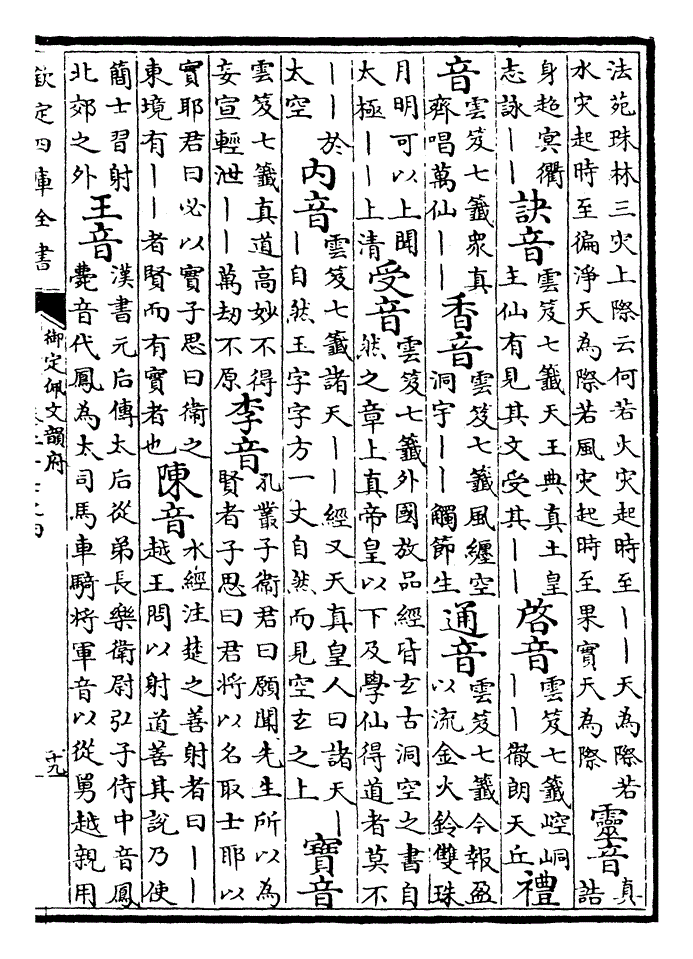 法苑珠林三災上際云何若火災起時至——天為際若
水災起時至徧淨天為際若風災起時至果實天為際
靈音
真
誥
身超冥衢
志詠——
訣音
雲笈七籤天王典真土皇
主仙有見其文受其——
啓音
雲笈七籤崆峒
——徹朗天丘
禮
音
雲笈七籤衆真
齊唱萬仙——
香音
雲笈七籤風纏空
洞宇——觸節生
通音
雲笈七籤今報盈
以流金火鈴雙珠
月明可以上聞
太極——上清
受音
雲笈七籤外國放品經皆玄古洞空之書自
然之章上真帝皇以下及學仙得道者莫不
——於
太空
內音
雲笈七籤諸天——經又天真皇人曰諸天—
—自然王字字方一丈自然而見空玄之上
寶音
雲笈七籤真道高妙不得
妄宣輕泄——萬劫不原
李音
孔叢子衞君曰願聞先生所以為
賢者子思曰君將以名取士耶以
實耶君曰必以實子思曰衞之
東境有——者賢而有實者也
陳音
水經注楚之善射者曰——
越王問以射道善其說乃使
簡士習射
北郊之外
王音
漢書元后傳太后從弟長樂衛尉弘子侍中音鳳
薨音代鳳為大司馬車騎將軍音以從舅越親用
欽定四庫全書
御定佩文韻府
十九